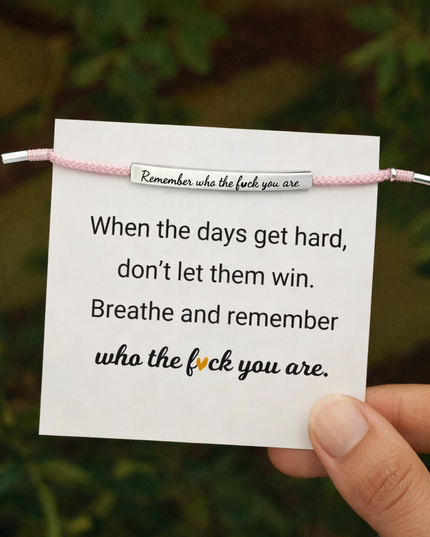 Remember who the fuck you are
When the days get hard,
don't let them win.
Breathe and remember
who the f🧡ck you are.